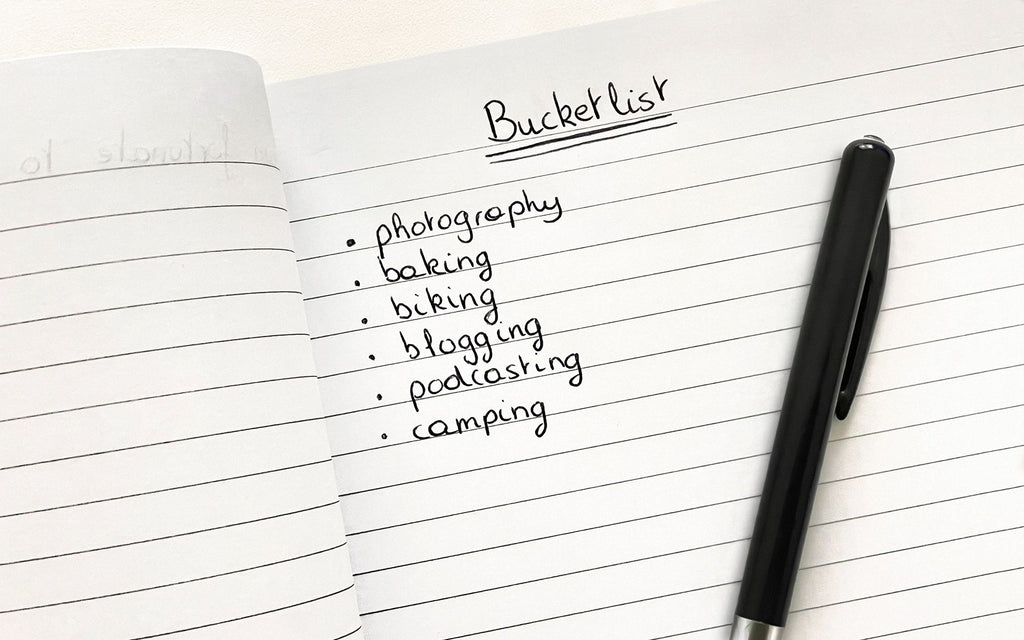 Bucketlist
• photography
• baking
• biking
• blogging
• podcasting
• camping